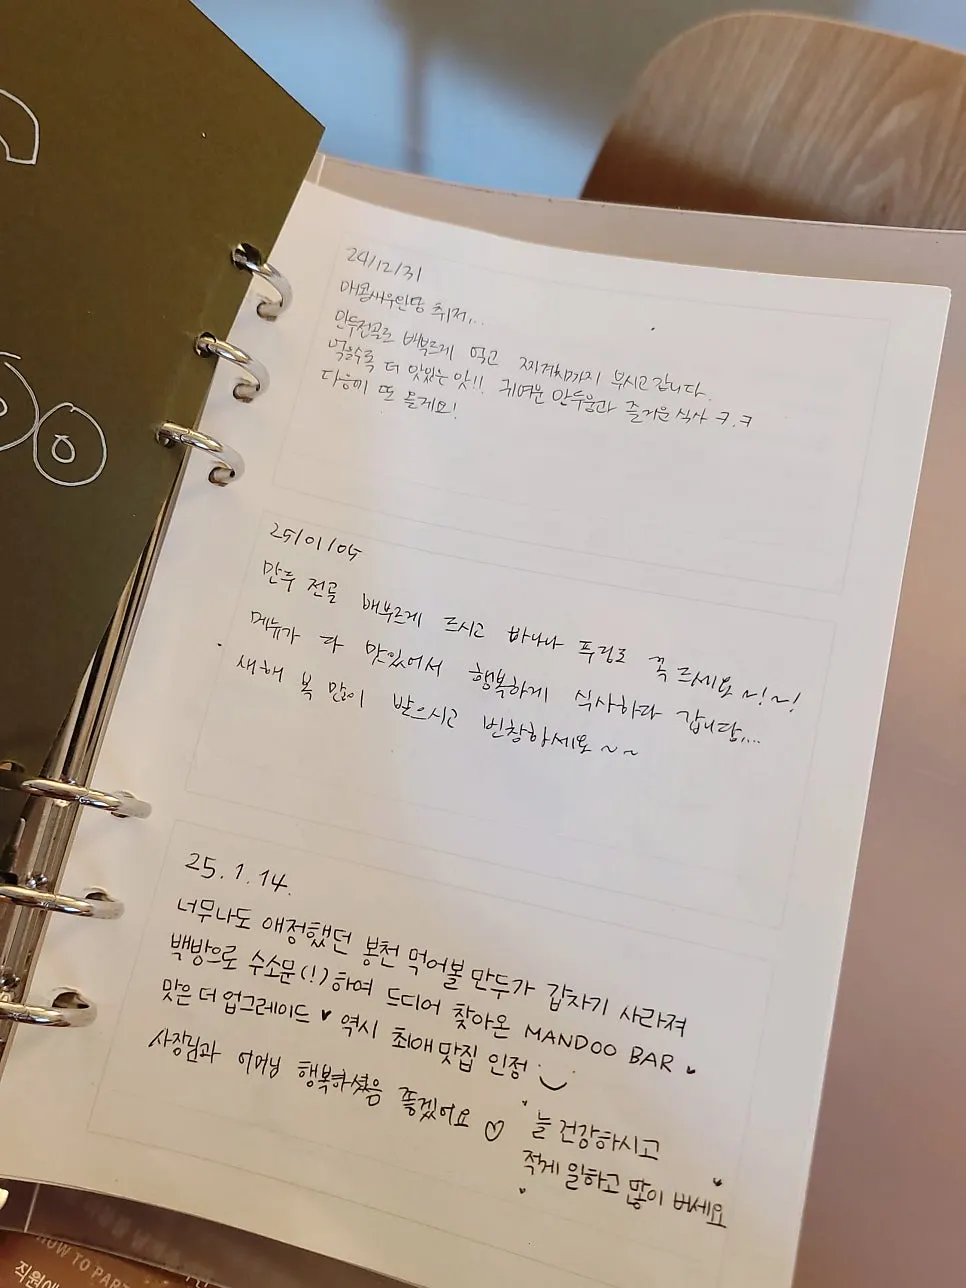 24/12/31
매콤새우만땅 취저...
만두전골로 배부르게 먹고 찌꺼기까지 부시고 갑니다.
먹을수록 더 맛있는 맛!! 귀여운 만두움과 즐거운 식사 ㅋ.ㅋ
다음에 또 올게요!
25/01/05
만두 전골 배부르게 드시고 바나나 푸딩도 꼭 드세요~!~!
메뉴가 다 맛있어서 행복하게 식사하다 갑니당...
새해 복 많이 받으시고 번창하세요~~
25.1.14.
너무나도 애정했던 봉천 먹어볼만두가 갑자기 사라져
백방으로 수소문(!)하여 드디어 찾아온 MANDOO BAR
맛은 더 업그레이드 ♥ 역시 최애 맛집 인정
사장님과 어머님 행복하셨음 좋겠어요 ♡
늘 건강하시고
적게 일하고 많이 버세요
HOW TO
직원